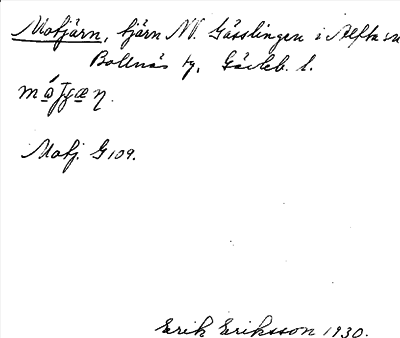 Motjärn, tjärn NV. Gässlingen i Alfta sn
Bollnäs tg, Gävleb. l.
Motj. G 109.
Erik Eriksson 1930.